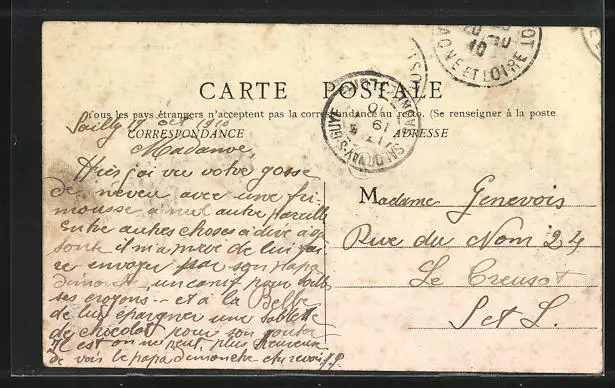 CARTE POSTALE
Tous les pays étrangers n'acceptent pas la correspondance au recto. (Se renseigner à la poste
CORRESPONDANCE
ADRESSE
Sailly 19 oct 1910
Madame,
Hier j'ai vu votre gosse
de neveu avec une fri-
mousse à nul autre pareille
Entre autres choses à dire à
il m'a prié de lui fai
re envoyer par son papa
dimanche, un canif pour
ses crayons -- et à la Belle
de lui épargner une tablette
de chocolat pour son gouter
Il est on ne peut plus heureux
de voir le papa dimanche
Madame Genevois
Rue du Nom 24
Le Creusot
S et L.
SALORNAY-S-GUYE
SAONE ET LOIRE